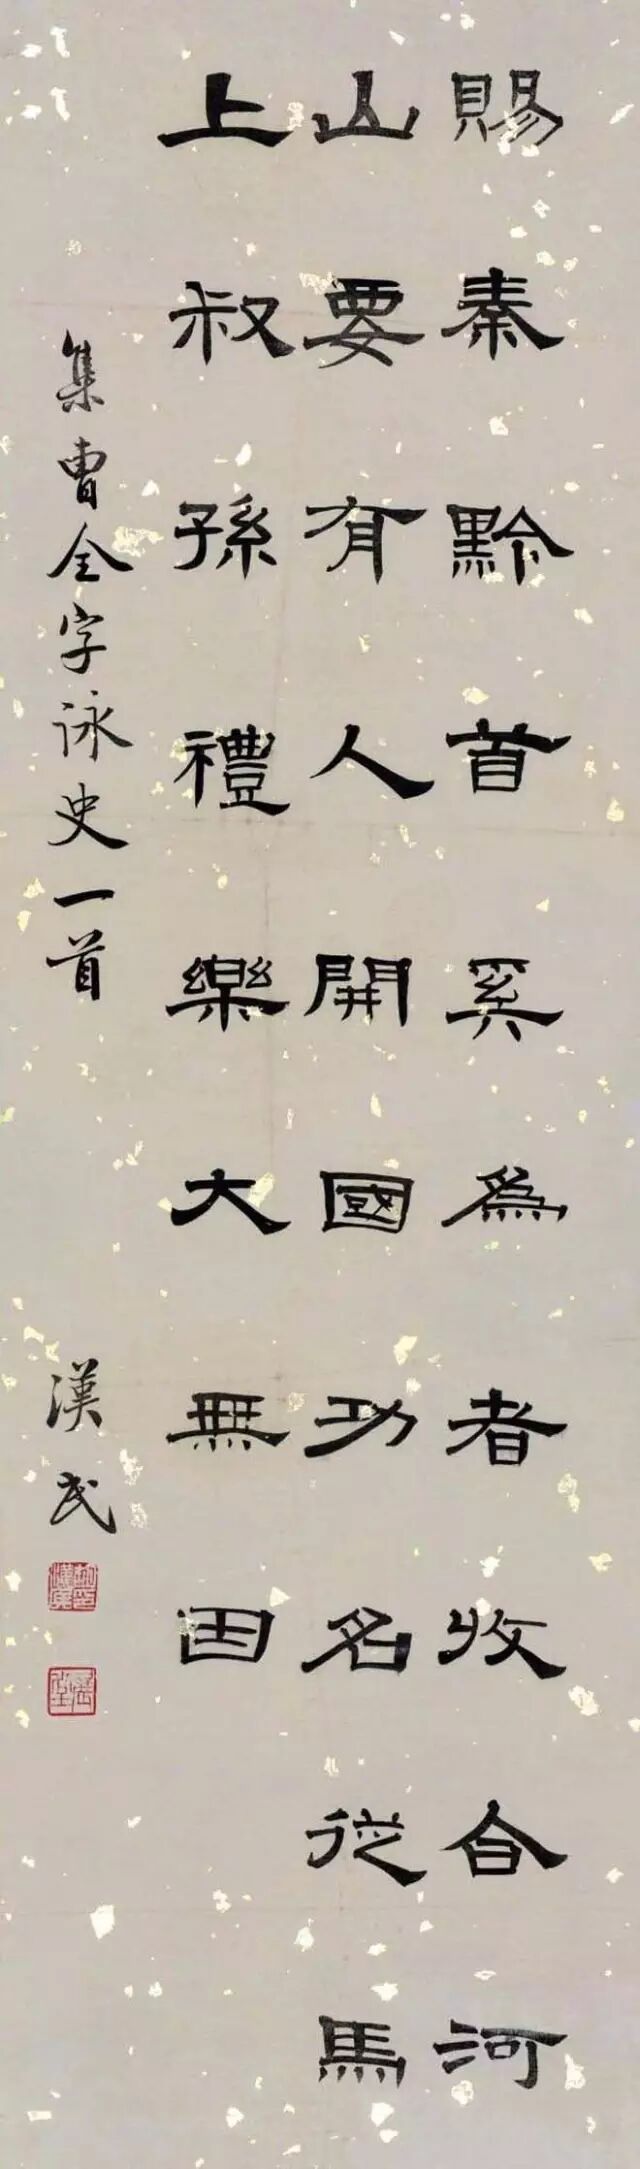 賜秦黔首奚為者收合河
山要有人開國功名從馬
上叔孫禮樂大無因
集曹全字詠史一首
漢民